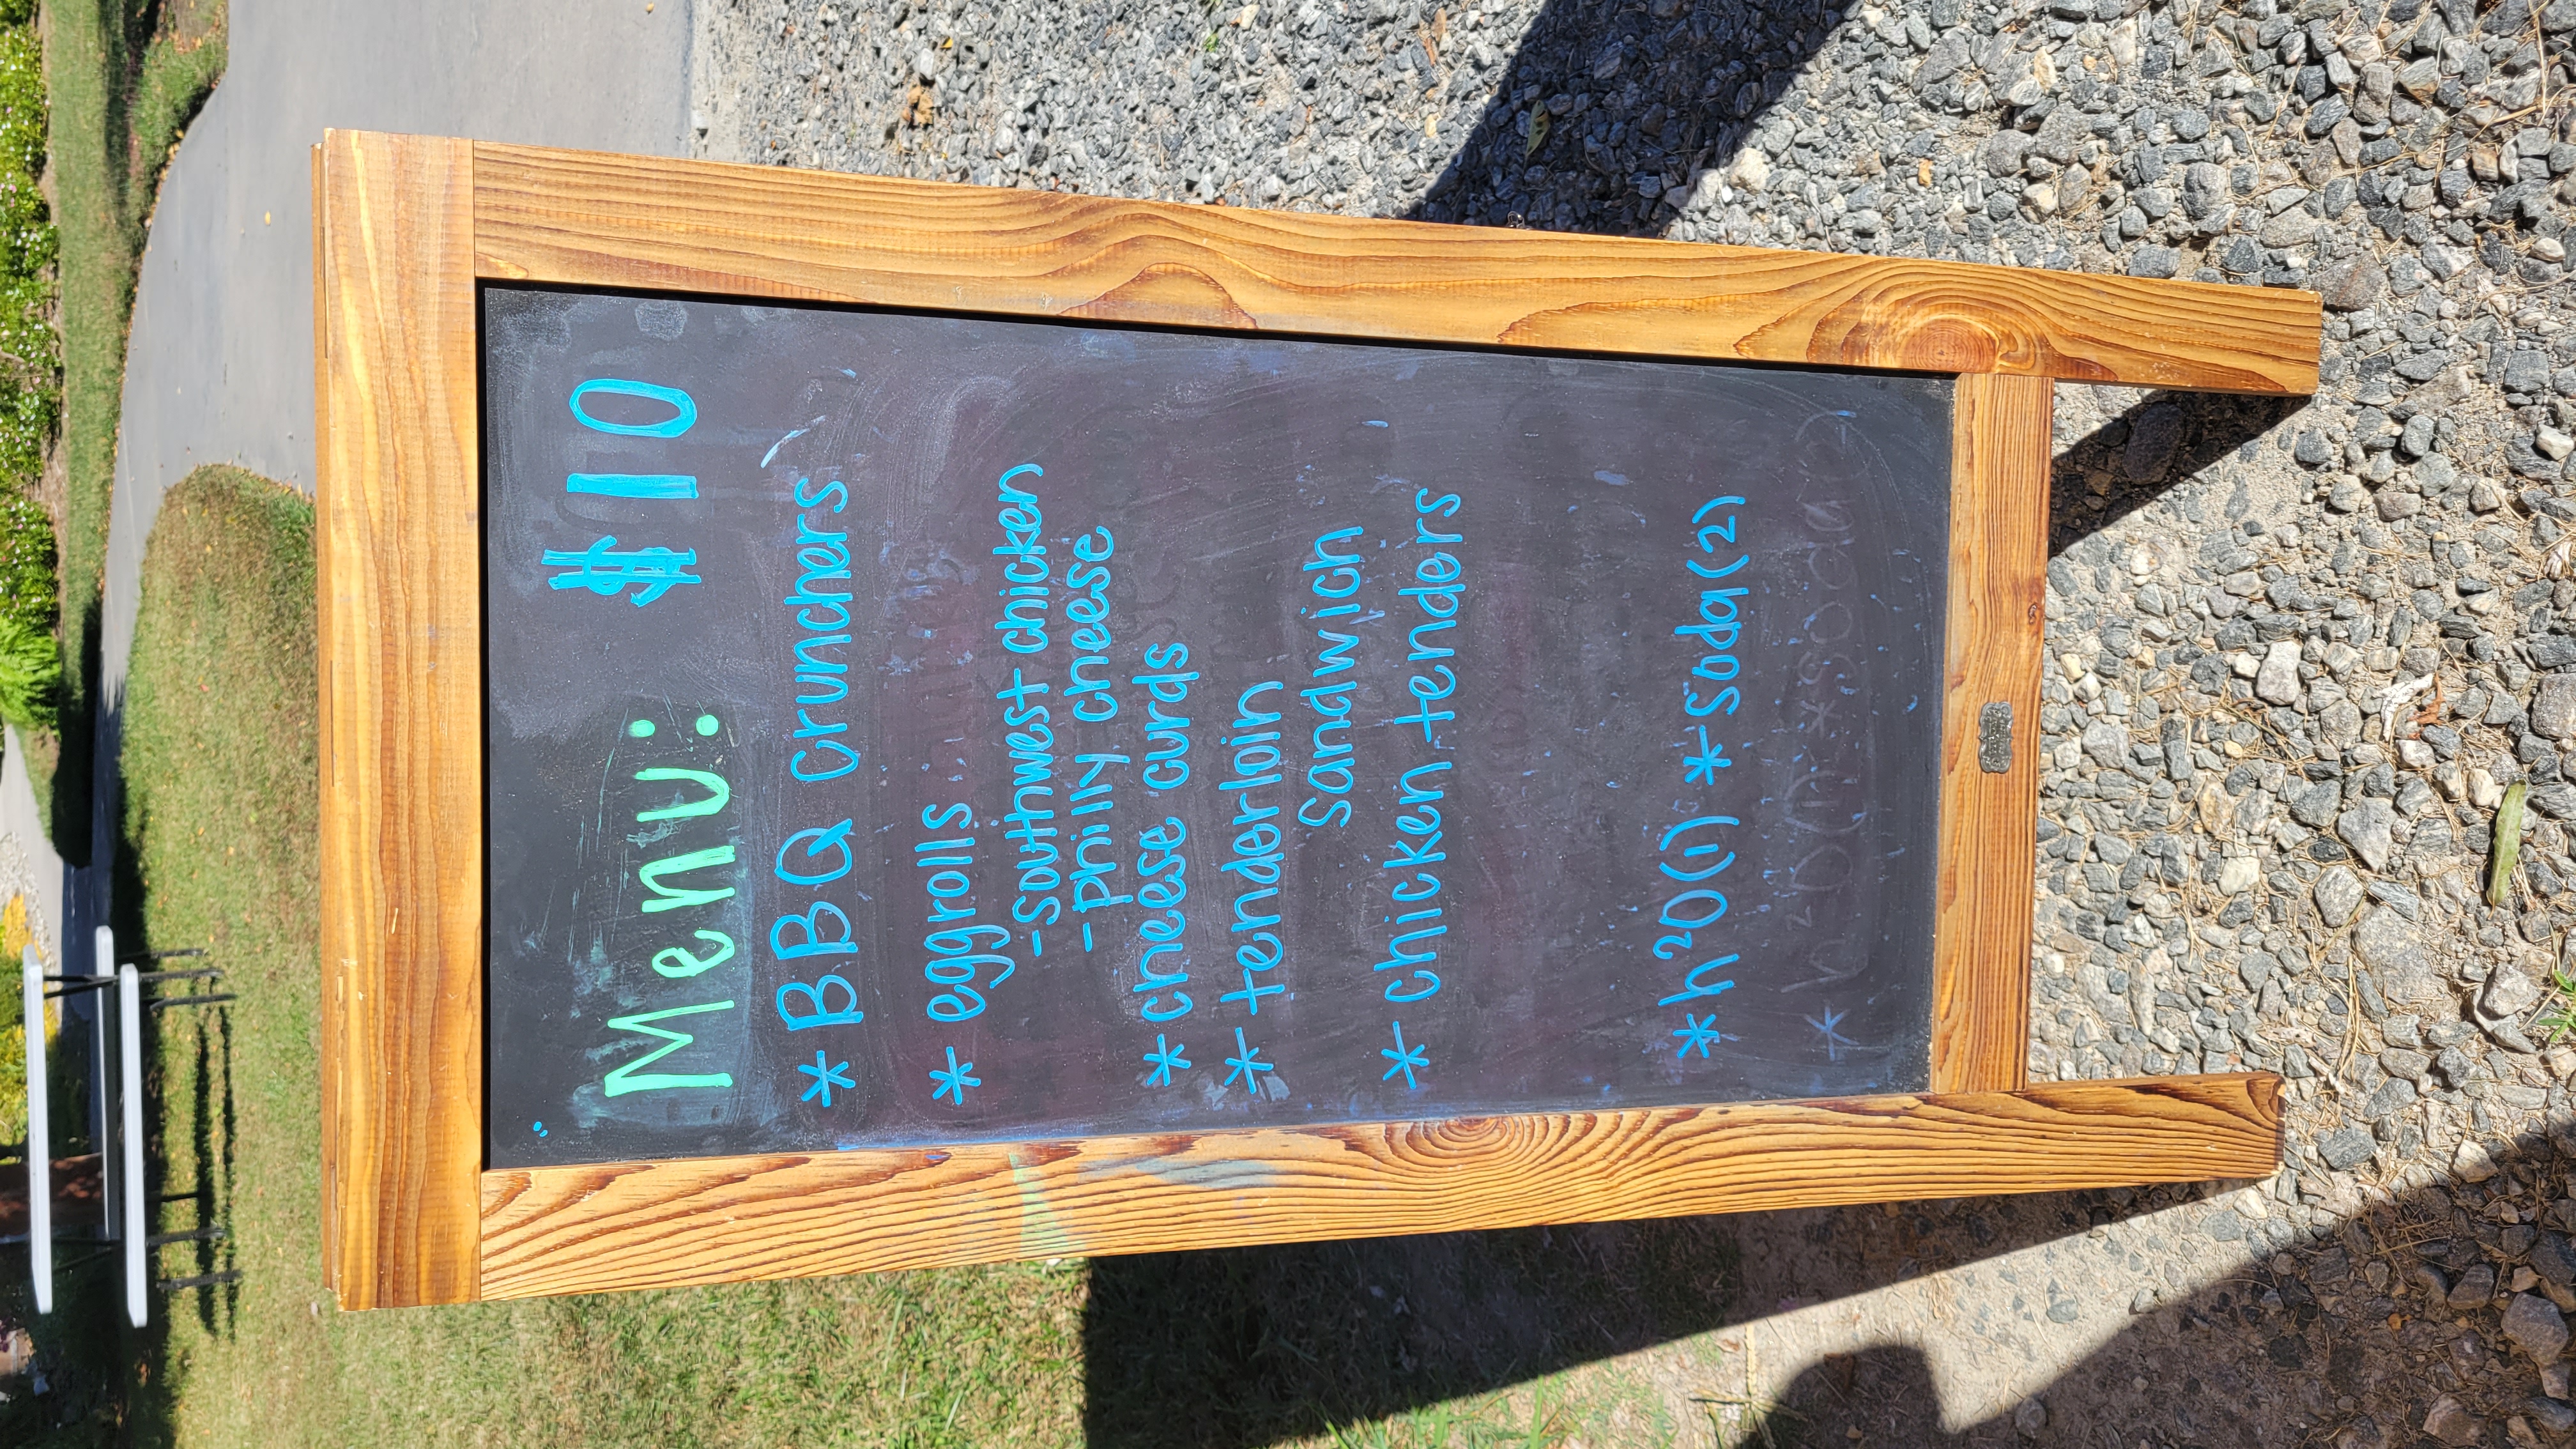 Menu: $10
* BBQ crunchers
* eggrolls
-southwest chicken
-philly cheese
* cheese curds
* tenderloin
sandwich
* chicken tenders
* h2O(1) * soda(2)